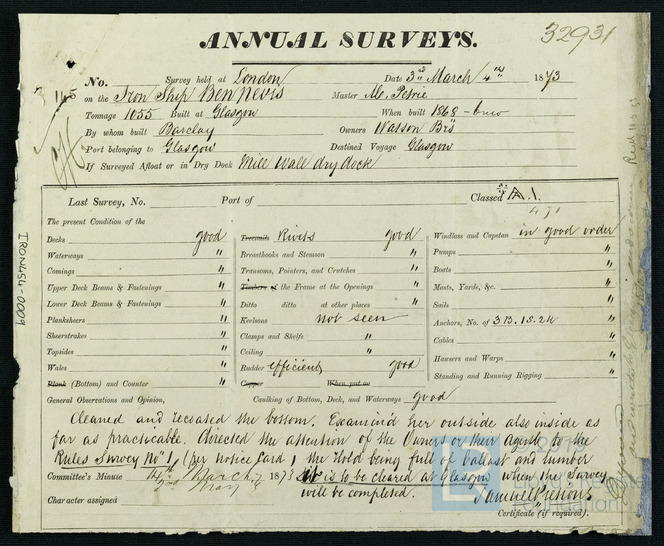 ANNUAL SURVEYS.
32931
No. 145 Survey held at London Date 3rd March 4th 1873
on the Iron Ship Ben Nevis Master Petrie
Tonnage 1055 Built at Glasgow When built 1868
By whom built Barclay Owners Watson Brs
Port belonging to Glasgow Destined Voyage Glasgow
If Surveyed Afloat or in Dry Dock Mill Wall dry dock
Last Survey, No. Port of Classed A.1.
The present Condition of the
Decks good
Waterways "
Comings "
Upper Deck Beams & Fastenings "
Lower Deck Beams & Fastenings "
Plankshears "
Sheerstrakes "
Topsides "
Wales "
Plank (Bottom) and Counter "
Treenails Rivets good
Breasthooks and Stemson "
Transoms, Pointers, and Crutches "
Timbers of the Frame at the Openings "
Ditto ditto at other places "
Keelsons not seen
Clamps and Shelfs "
Ceiling "
Rudder efficient good
Copper When put on
Windlass and Capstan in good order
Pumps "
Boats "
Masts, Yards, &c. "
Sails "
Anchors, No. of 3B. 1S. 2K
Cables "
Hawsers and Warps "
Standing and Running Rigging "
General Observations and Opinion, Caulking of Bottom, Deck, and Waterways good
Cleaned and recoated the bottom. Examined her outside also inside as
far as practicable. directed the attention of the Owners or their Agent to the
Rules Survey No 1, (per notice Card) the Hold being full of ballast and lumber
Committee's Minute March 1873 is to be cleared at Glasgow when the Survey
will be completed.
Character assigned
Certificate (if required).
IRON454-0009